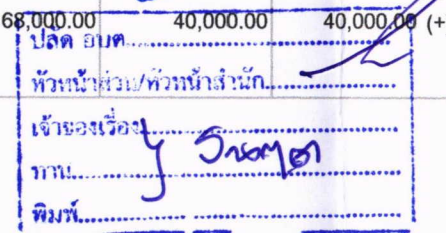 68,000.00 40,000.00 40,000.00 (+
ปลัด อบต.
หัวหน้าส่วน/หัวหน้าสำนัก
เจ้าของเรื่อง
ทาน
พิมพ์